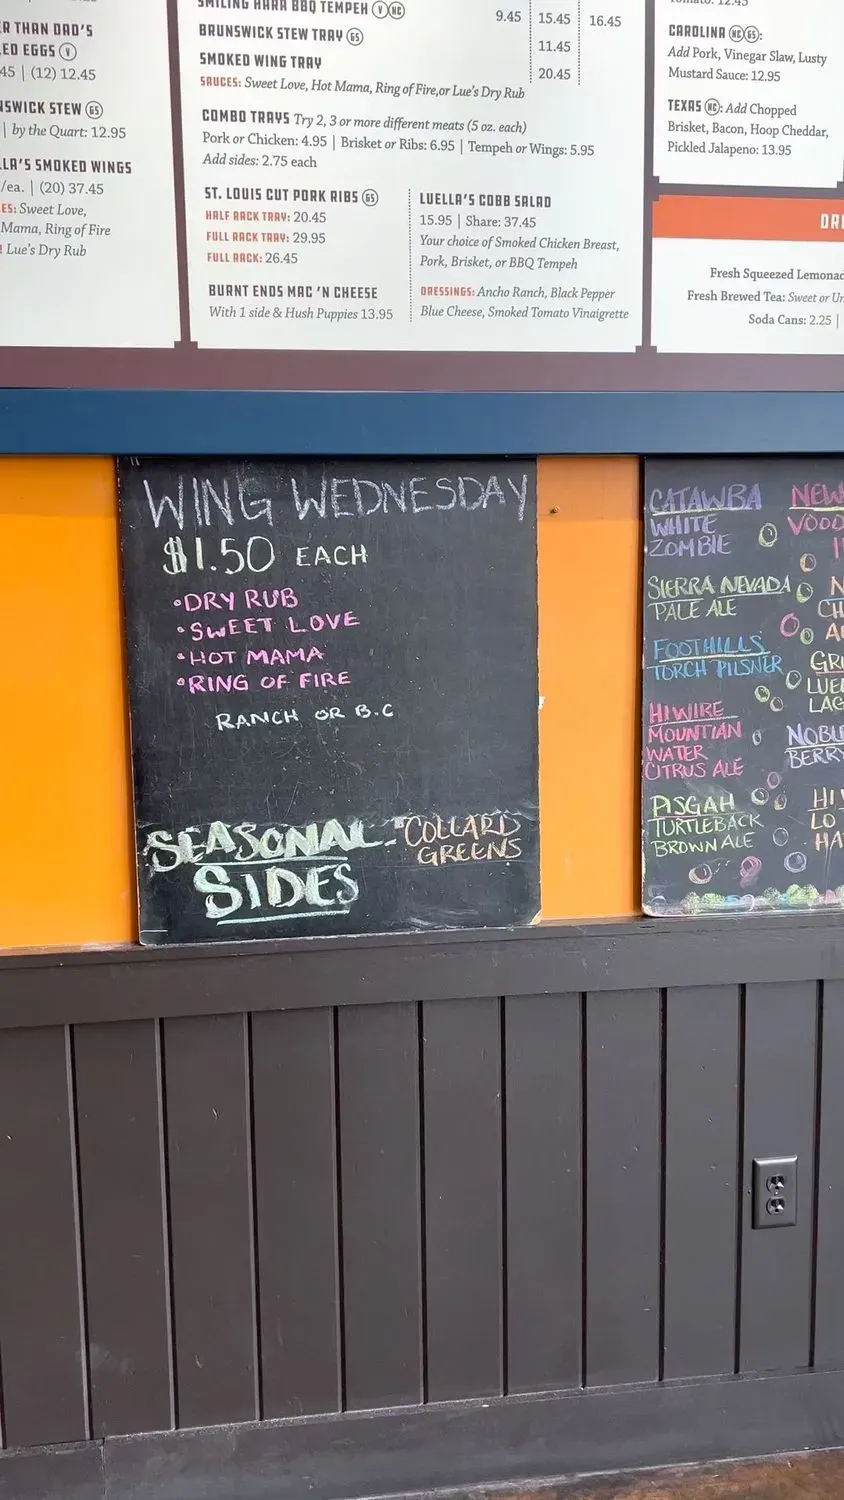 ER THAN DAD'S
ED EGGS V
45 | (12) 12.45
NSWICK STEW GS
| by the Quart: 12.95
LLA'S SMOKED WINGS
/ea. | (20) 37.45
ES: Sweet Love,
Mama, Ring of Fire
Lue's Dry Rub
SMILING HARA BBQ TEMPEH V NC
9.45 15.45 16.45
BRUNSWICK STEW TRAY GS
11.45
SMOKED WING TRAY
20.45
SAUCES: Sweet Love, Hot Mama, Ring of Fire,or Lue's Dry Rub
COMBO TRAYS Try 2, 3 or more different meats (5 oz. each)
Pork or Chicken: 4.95 | Brisket or Ribs: 6.95 | Tempeh or Wings: 5.95
Add sides: 2.75 each
ST. LOUIS CUT PORK RIBS GS
HALF RACK TRAY: 20.45
FULL RACK TRAY: 29.95
FULL RACK: 26.45
BURNT ENDS MAC 'N CHEESE
With 1 side & Hush Puppies 13.95
LUELLA'S COBB SALAD
15.95 | Share: 37.45
Your choice of Smoked Chicken Breast,
Pork, Brisket, or BBQ Tempeh
DRESSINGS: Ancho Ranch, Black Pepper
Blue Cheese, Smoked Tomato Vinaigrette
Tomato: 12.45
CAROLINA NC GS:
Add Pork, Vinegar Slaw, Lusty
Mustard Sauce: 12.95
TEXAS NC: Add Chopped
Brisket, Bacon, Hoop Cheddar,
Pickled Jalapeno: 13.95
DRI
Fresh Squeezed Lemonad
Fresh Brewed Tea: Sweet or Un
Soda Cans: 2.25 |
WING WEDNESDAY
$1.50 EACH
•DRY RUB
•SWEET LOVE
•HOT MAMA
•RING OF FIRE
RANCH OR B.C
SEASONAL - "COLLARD
GREENS
SIDES
CATAWBA
WHITE
ZOMBIE
SIERRA NEVADA
PALE ALE
FOOTHILLS
TORCH PILSNER
HIWIRE
MOUNTIAN
WATER
CITRUS ALE
PISGAH
TURTLEBACK
BROWN ALE
NEW
VOOD
I
N
CH
A
GRE
LUE
LAG
NOBL
BERRY
HI
LO
HA